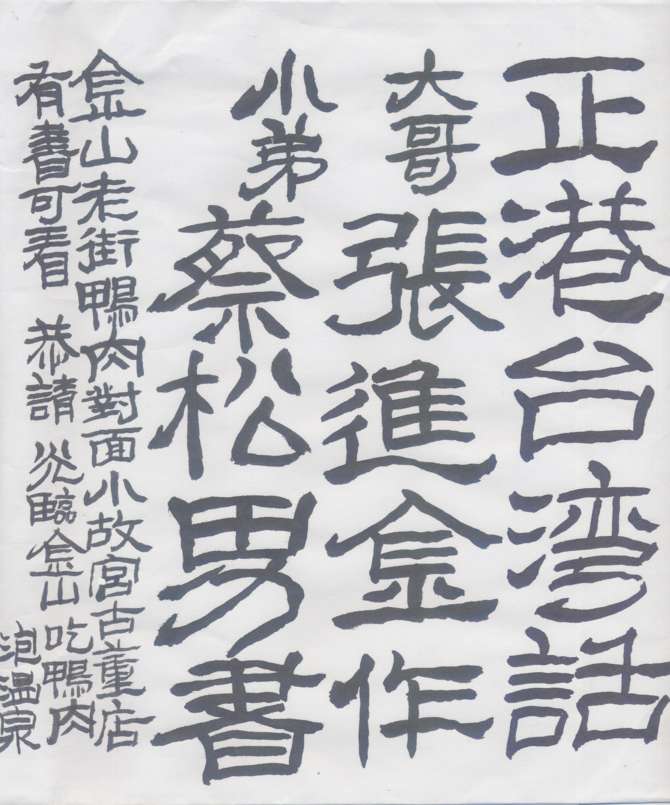 正港台湾話
大哥 張進金作
小弟 蔡松男書
金山老街鴨肉對面小故宮古董店
有書可看 恭請 光臨金山吃鴨肉
泡溫泉